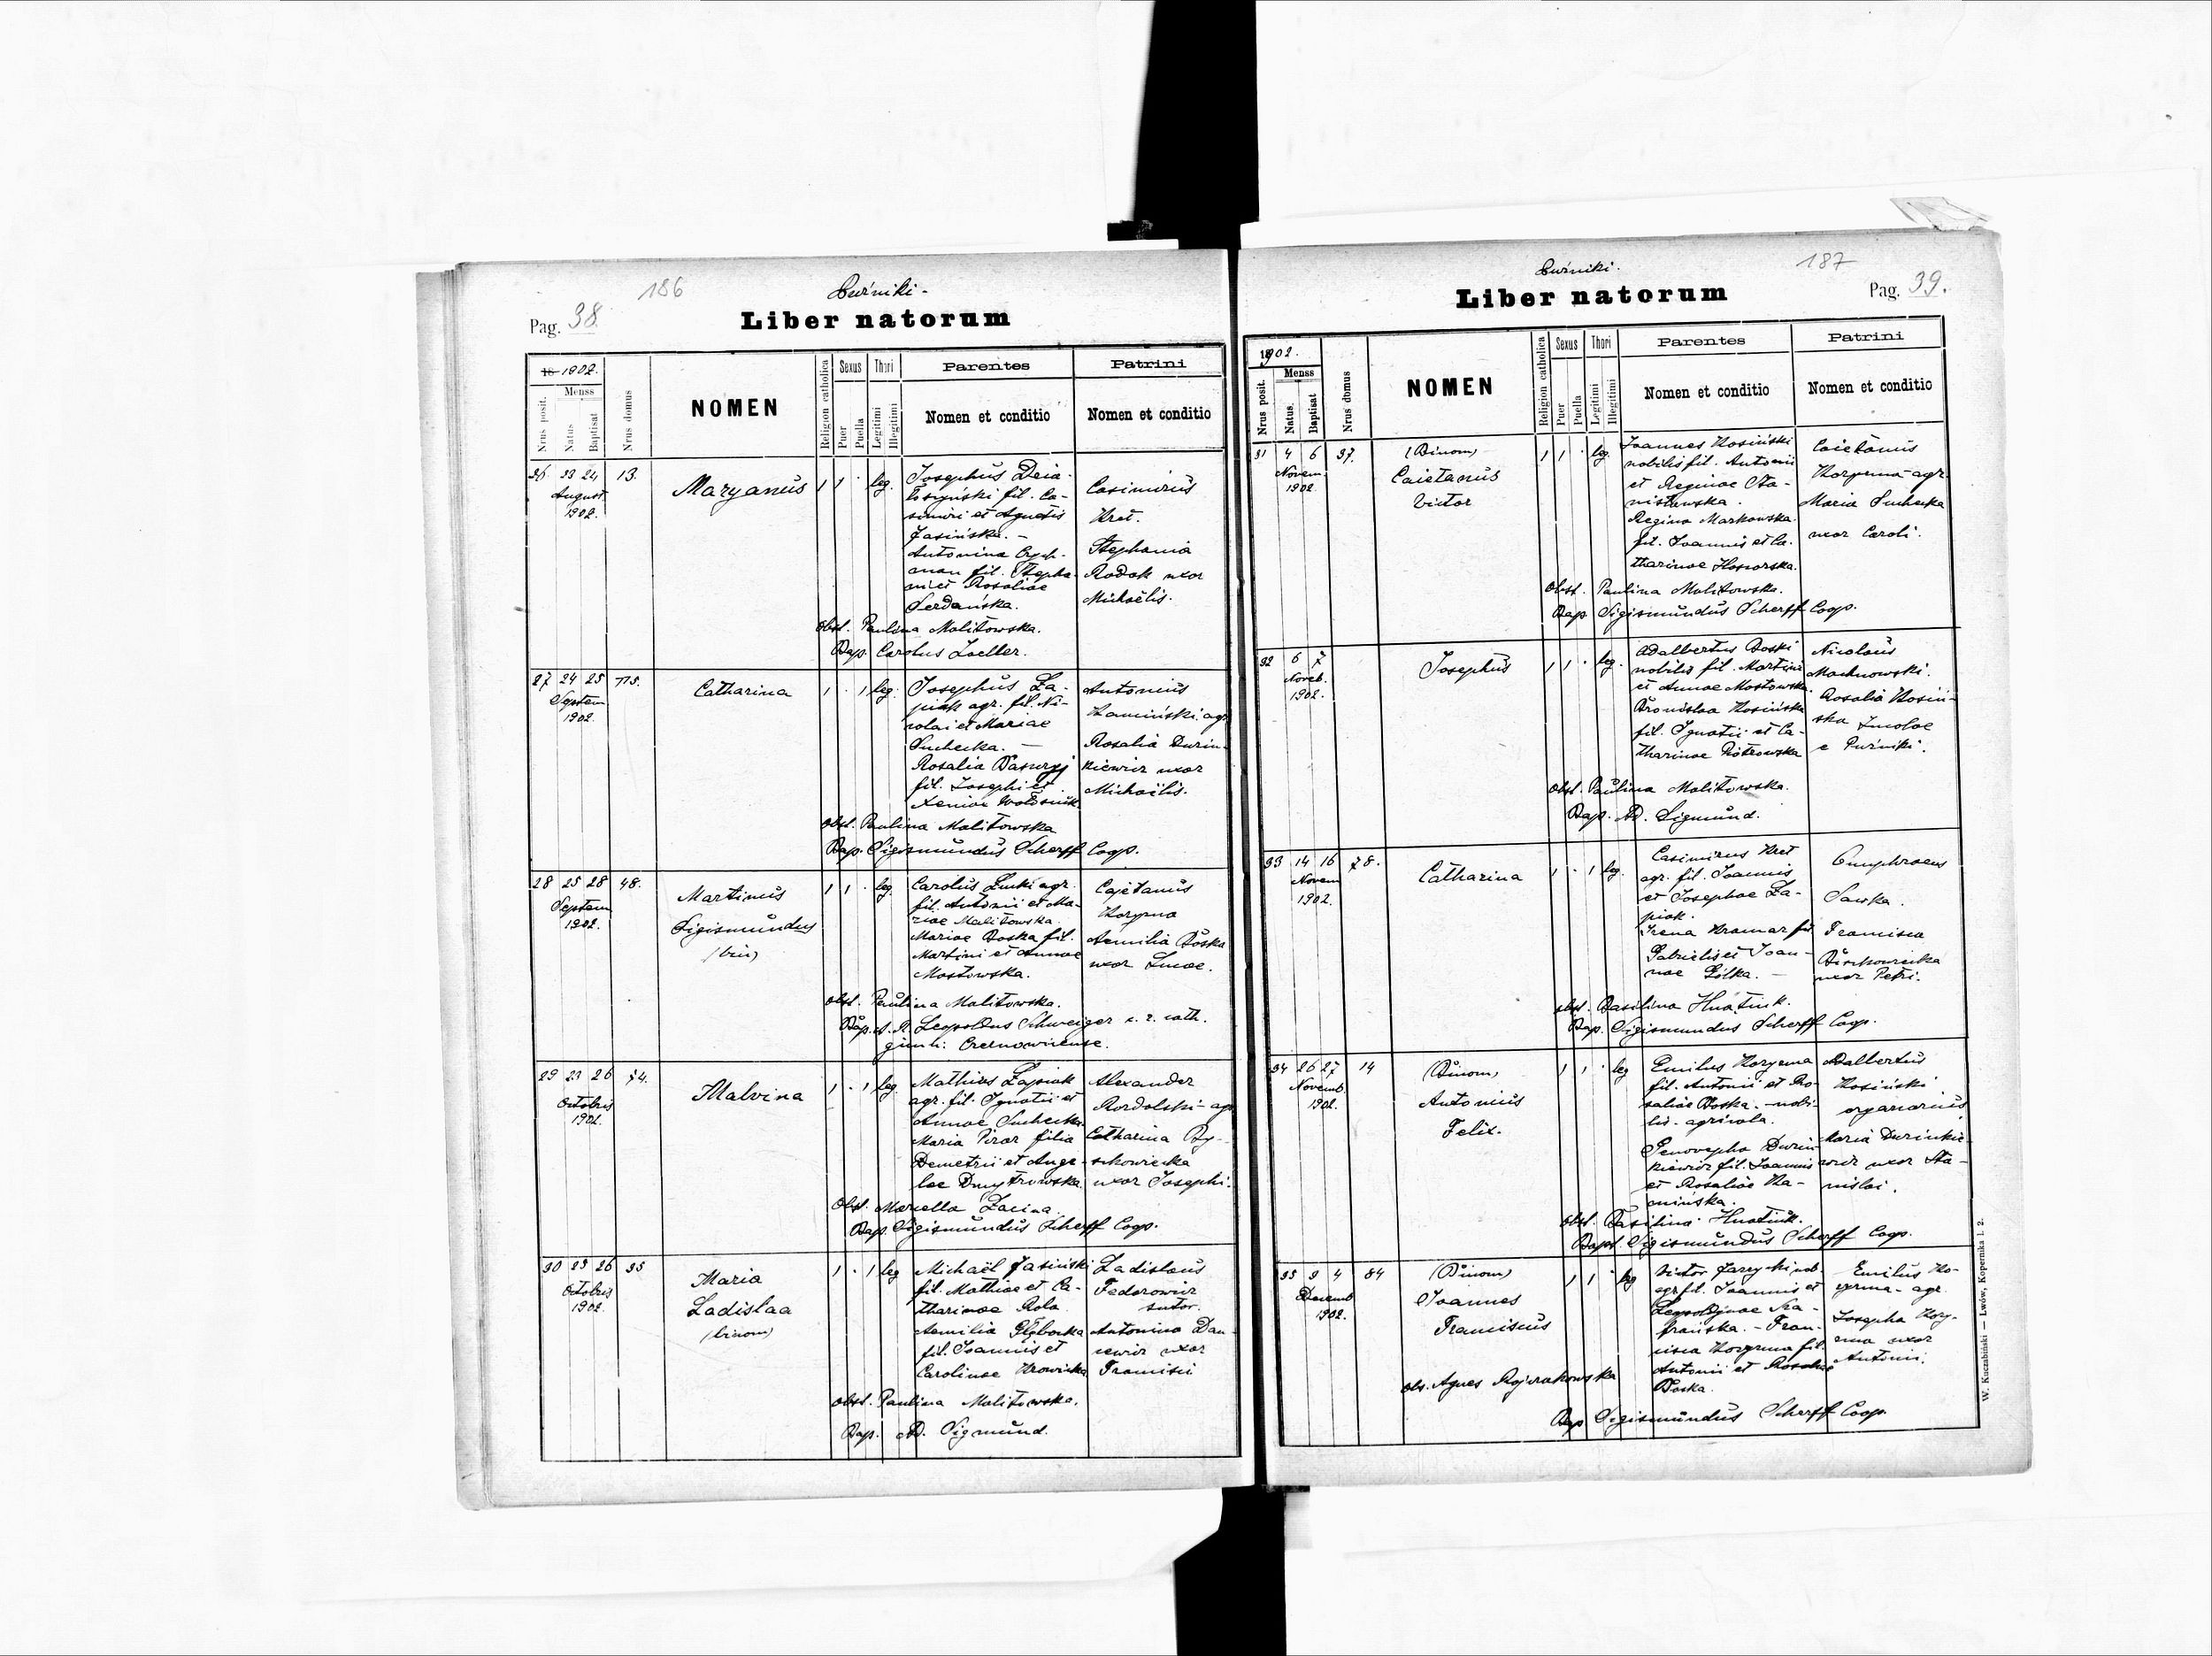 186
Puźniki -
Pag. 38.
Liber natorum
18 1902.
Menss
Nrus posit.
Natus
Baptisat
Nrus domus
NOMEN
Religion catholica
Sexus
Puer
Puella
Thori
Legitimi
Illegitimi
Parentes
Nomen et conditio
Patrini
Nomen et conditio
26 23 24 13.
August
1902.
Maryanus
1 1 · leg.
Josephus
fil. Ca-
simiri et Agnetis
Jasińska. -
Antonina
fil. Stepha-
ni et Rosaliae
Serdańska.
Casimirus
Kret.
Stephania
Rodak uxor
Michaëlis.
Obst. Paulina Malitowska.
Bap. Carolus Zoeller.
27 24 25 115.
Septem
1902.
Catharina
1 · 1 leg.
Josephus Ła-
piak agr. fil. Ni-
colai et Mariae
Suchecka. -
Rosalia
fil. Josephi et
Xeniae
Antonius
Kamiński agr
Rosalia Durin-
kiewicz uxor
Michaëlis.
Obst. Paulina Malitowska
Bap. Sigismundus Scherff Coop.
28 25 28 48.
Septem
1902.
Martinus
Sigismundus
(bin)
1 1 · leg.
Carolus agr.
fil. Antonii et Ma-
riae Malitowska.
Mariae Boska fil.
Martini et Annae
Mostowska.
Cajetanus
Koryzma
Aemilia Boska
uxor Lucae.
Obst. Paulina Malitowska.
Bap. A. R. Leopoldus Schweiger c. r. cath.
gimn: Czernowiense.
29 23 26 74.
Octobris
1902.
Malvina
1 · 1 leg
Mathias Łapiak
agr. fil. Ignatii et
Annae Suchecka.
Maria filia
Demetrii et Ange-
lae Dmytrowska.
Alexander
agr
Catharina By-
czkowiecka
uxor Josephi.
Obst. Marcella Zacina.
Bap. Sigismundus Scherff Coop.
30 23 26 35
Octobris
1902.
Maria
Ladislaa
(binom)
1 · 1 leg
Michaël Jasiński
fil. Mathiae et Ca-
tharinae Rola.
Aemilia Głębocka
fil. Joannis et
Carolinae Krowicka
Ladislaus
Fedorowicz
sutor.
Antonina Dan-
cewicz uxor
Francisci
Obst. Paulina Malitowska.
Bap. A. Sigmund.
Puźniki.
187
Liber natorum
Pag. 39.
1902.
Menss
Nrus posit.
Natus.
Baptisat
Nrus domus
NOMEN
Religion catholica
Sexus
Puer
Puella
Thori
Legitimi
Illegitimi
Parentes
Nomen et conditio
Patrini
Nomen et conditio
31 4 6 37.
Novem
1902.
(Binom)
Caietanus
Victor
1 1 · leg.
Joannes Kosiński
nobilis fil. Antonii
et Reginae Sta-
nisławska.
Regina Markowska.
fil. Joannis et Ca-
tharinae
Caietanus
Koryzma - agr.
Maria Suchecka
uxor Caroli.
Obst. Paulina Malitowska.
Bap. Sigismundus Scherff Coop.
32 6 7
Noveb.
1902.
Josephus
1 1 · leg.
Adalbertus Boski
nobilis fil. Martini
et Annae Mostowska.
Bronislaa Kosińska
fil. Ignatii et Ca-
tharinae Piotrowska
Nicolaus
Machnowski.
Rosalia Kosiń-
ska Incolae
e Puźniki.
Obst. Paulina Malitowska.
Bap. A. Sigmund.
33 14 16 78.
Novem
1902.
Catharina
1 · 1 leg.
Casimirus Kret
agr. fil. Joannis
et Josephae Ła-
piak.
Irena Kramar fil
Gabrielis et Joan-
nae Gilka. -
Sawka.
Francisca
uxor Petri.
obst. Basilina Hnatiuk.
Bap. Sigismundus Scherff Coop.
34 26 27 14
Novemb.
1902.
(Binom)
Antonius
Felix.
1 1 · leg
Emilus Koryzma
fil. Antonii et Ro-
saliae Boska. - nobi-
lis. agricola.
Genovepha Durin-
kiewicz fil. Joannis
et Rosaliae Ka-
mińska.
Adalbertus
Kosiński
organarius
Maria Durinkie-
wicz uxor Sta-
nislai.
obst. Basilina Hnatiuk.
Bapt. Sigismundus Scherff Coop.
35 3 4 84
Decemb
1902.
(Binom)
Joannes
Franciscus
1 1 · leg
Victor nob.
agr fil. Joannis et
Leopoldinae
- Fran-
cisca Koryzma fil.
Antonii et Rosaliae
Boska.
Emilus Ko-
ryzma - agr.
Josepha Kory-
zma uxor
Antonii.
obs. Agnes
Bap Sigismundus Scherff Coop.
W. Kuczabiński — Lwów, Kopernika l. 2.